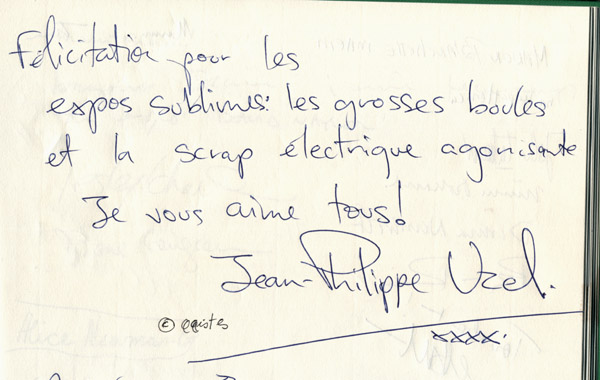 Félicitation pour les
expos sublimes: les grosses boules
et la scrap électrique agonisante
Je vous aime tous!
Jean-Philippe Uzel.
© egistes
xxxx.